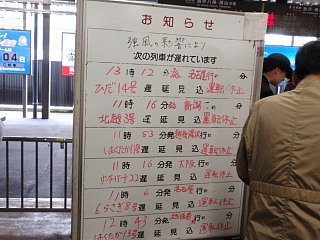 お知らせ
強風の影響により
次の列車が遅れています
13時12分発 名古屋行 分
ひだ14号 遅延見込 運転休止
11時16分発 新潟 分
北越3号 遅延見込 運転休止
11時53分発 越後湯沢行 分
はくたか9号 遅延見込 運転休止
11時16分発 大阪行 分
サンダーバード22 遅延見込 運転休止
11時6分発 名古屋行 分
しらさぎ8号 遅延見込 運転休止
12時43分発 行 分
はくたか13号 遅延見込 運転休止
04